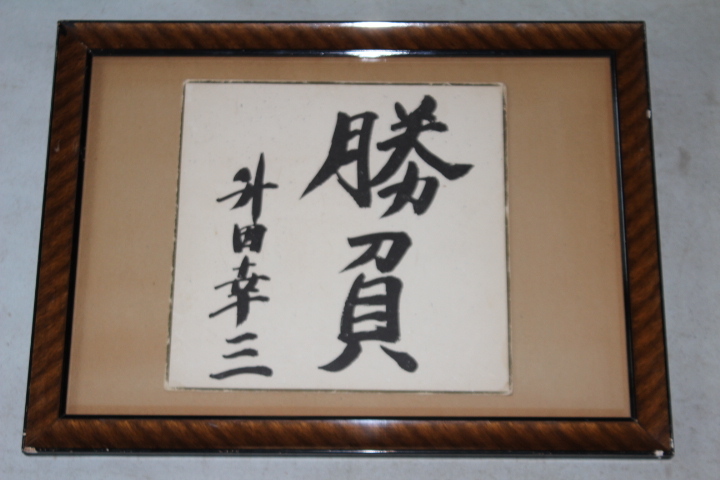 勝負
升田幸三